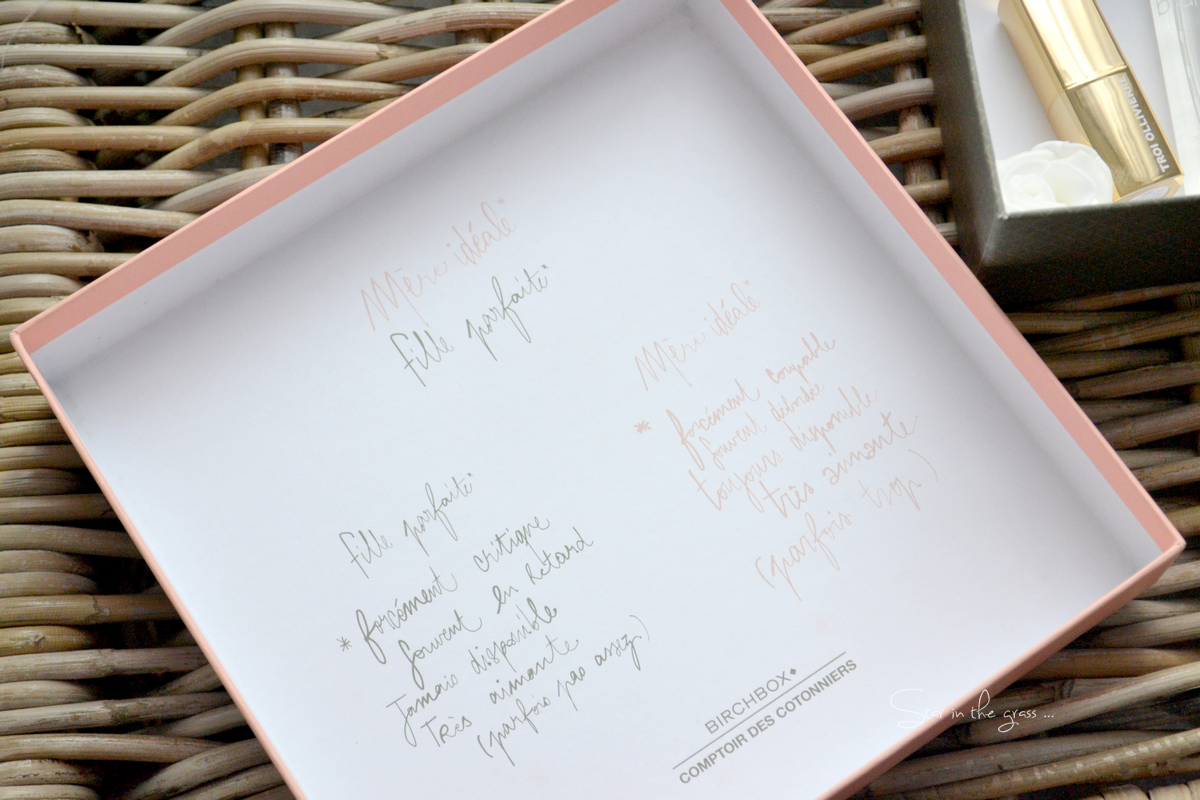 Mère idéale*
fille parfaite*
Mère idéale*
* forcément coupable
souvent débordée
toujours disponible
très aimante
(parfois trop)
fille parfaite*
* forcément critique
souvent en retard
Jamais disponible
très aimante
(parfois pas assez)
BIRCHBOX
COMPTOIR DES COTONNIERS
TROI OLLIVIERRE
Star in the grass ...